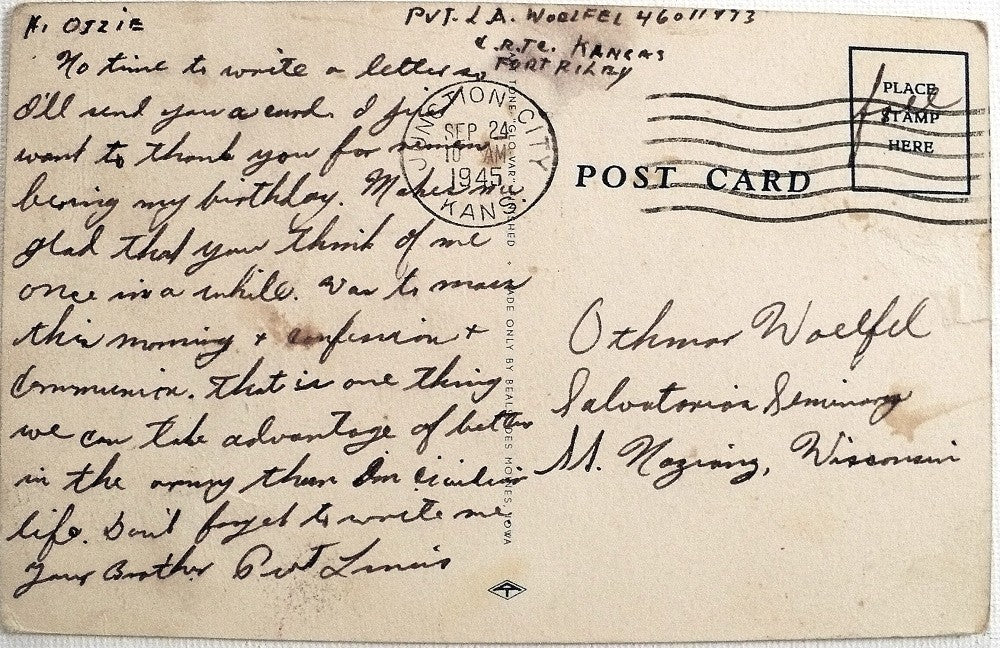 Hi Ozzie
PVT. L A. WOELFEL 46011773
C.R.T.C. KANSAS
FORT RILEY
No time to write a letter so
I'll send you a card. I just
want to thank you for remem
bering my birthday. Makes me
glad that you think of me
once in a while. Was to mass
this morning + confession +
Communion. That is one thing
we can take advantage of better
in the army than in civilian
life. Don't forget to write me.
Your Brother Pvt Louis
JUNCTION CITY
SEP 24
10 AM
1945
KANS.
TONE "GLO-VAR" FINISHED • MADE ONLY BY BEALS, DES MOINES, IOWA
POST CARD
PLACE
STAMP
HERE
free
Othmar Woelfel
Salvatorian Seminary
St. Nazianz, Wisconsin